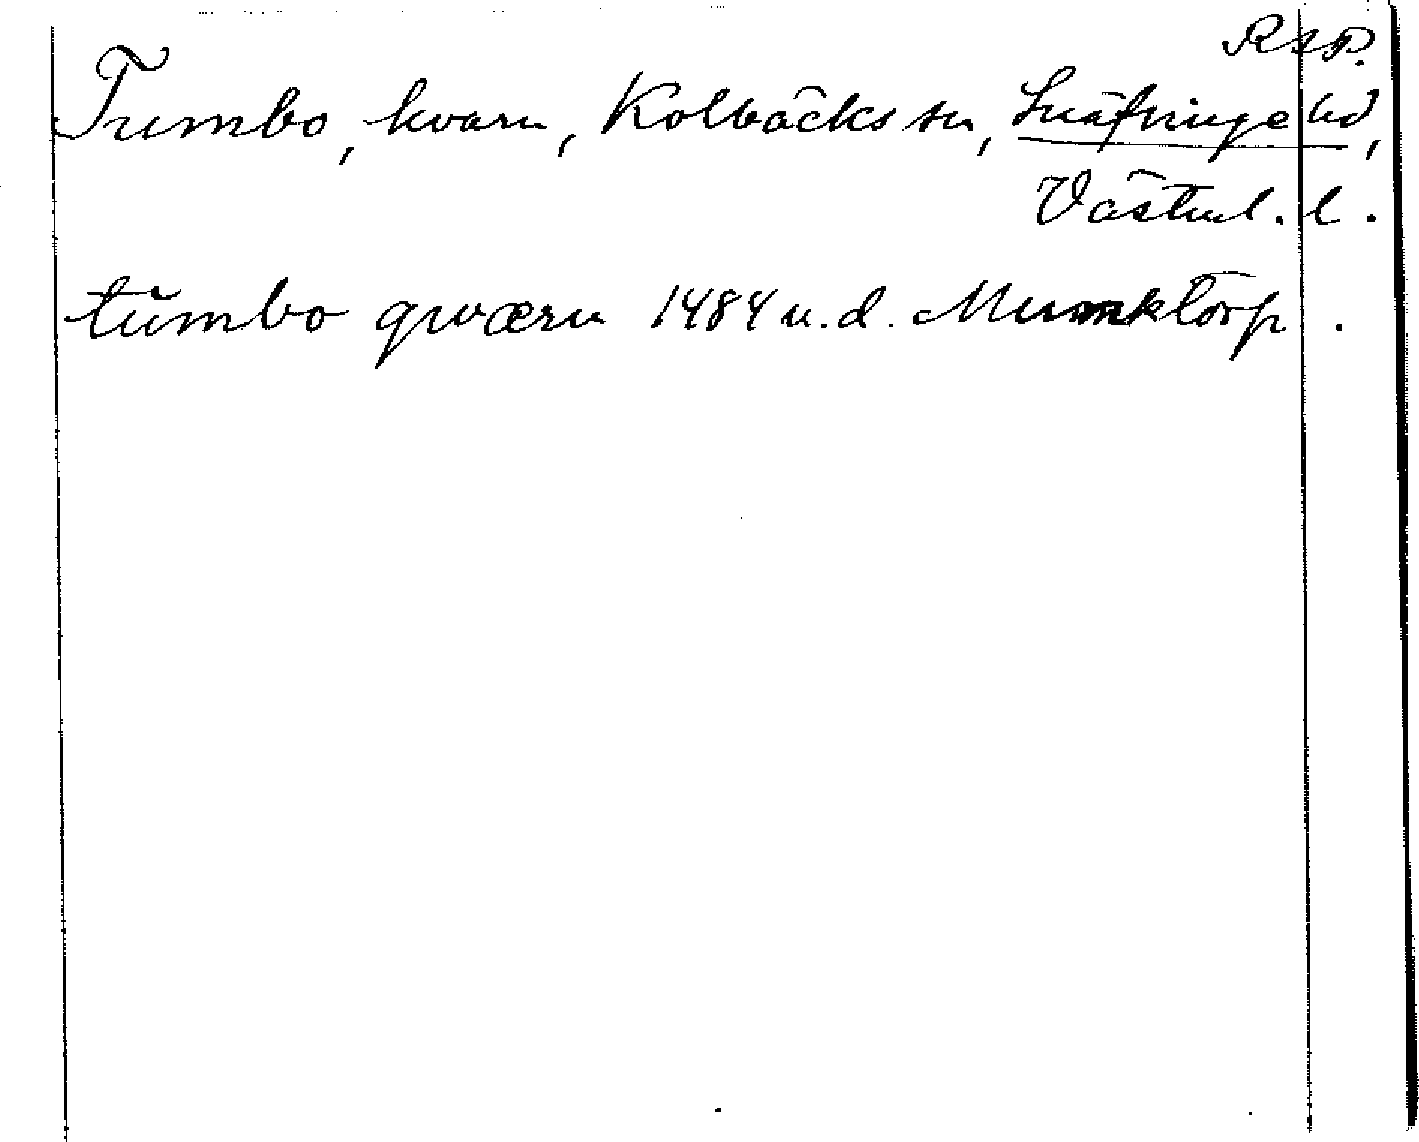 RAP.
Tumbo, kvarn, Kolbäcks sn, Snäfringe hd,
Västml. l.
tŭmbo qwærn 1484 u. d. Munktorp.